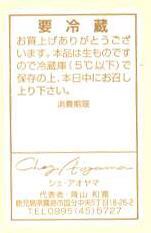 要冷蔵
お買上げありがとうござい
ます。本品は生ものですの
で冷蔵庫(5℃以下)で
保存の上、本日中にお召し
上り下さい。
消費期限
Chez Aoyama
シェ・アオヤマ
代表者 青山 和寛
鹿児島県霧島市国分中央5丁目18-26-2
TEL0995(45)5727